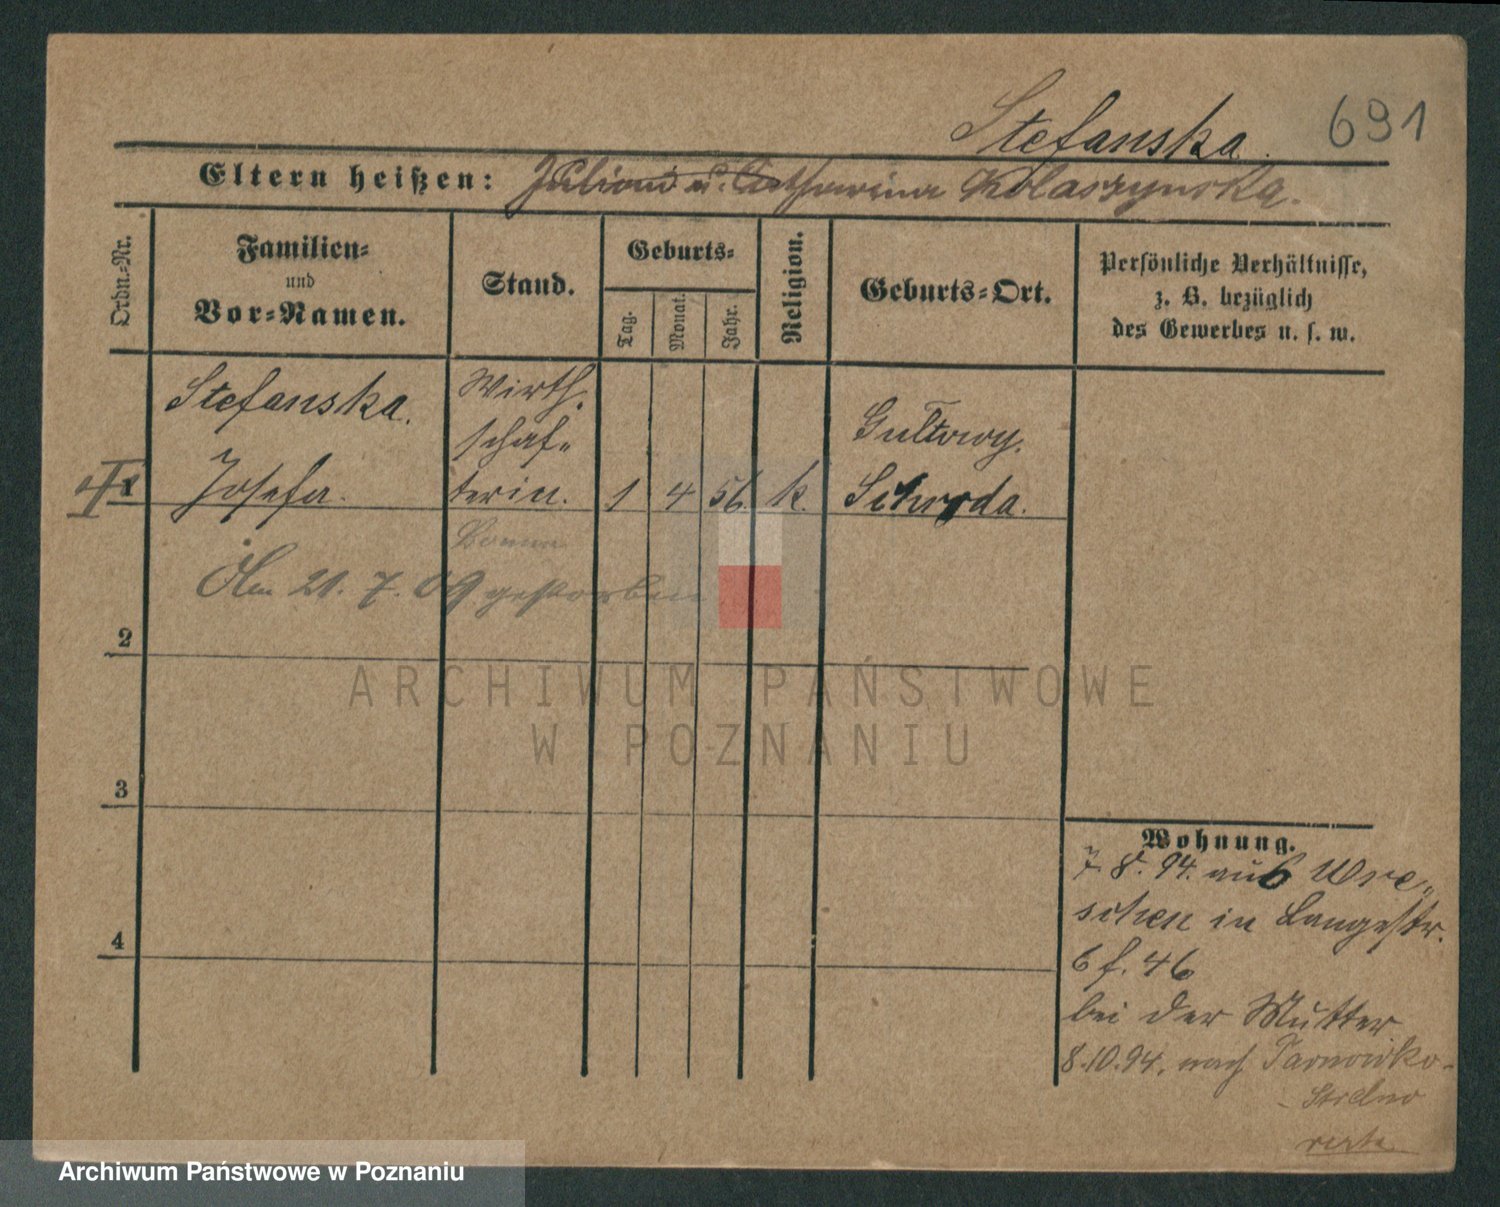 Stefanska.
691
Eltern heißen: Julian u. Catharina Kolaszynska.
Ordn.-Nr.
Familien-
und
Vor-Namen.
Stand.
Geburts-
Tag.
Monat.
Jahr.
Religion.
Geburts-Ort.
Persönliche Verhältnisse,
z. B. bezüglich
des Gewerbes u. s. w.
Stefanska.
Josefa.
Wirth-
schaf-
terin.
1
4
56.
k.
Gultowy.
Schroda.
1
Am 21. 7. 09 gestorben
2
3
4
Wohnung.
7. 8. 94. aus Wre-
schen in Langestr.
6 f. 46
bei der Mutter
8.10.94. nach Tarnowko-
Strelno
verte
ARCHIWUM PAŃSTWOWE
W POZNANIU
Archiwum Państwowe w Poznaniu